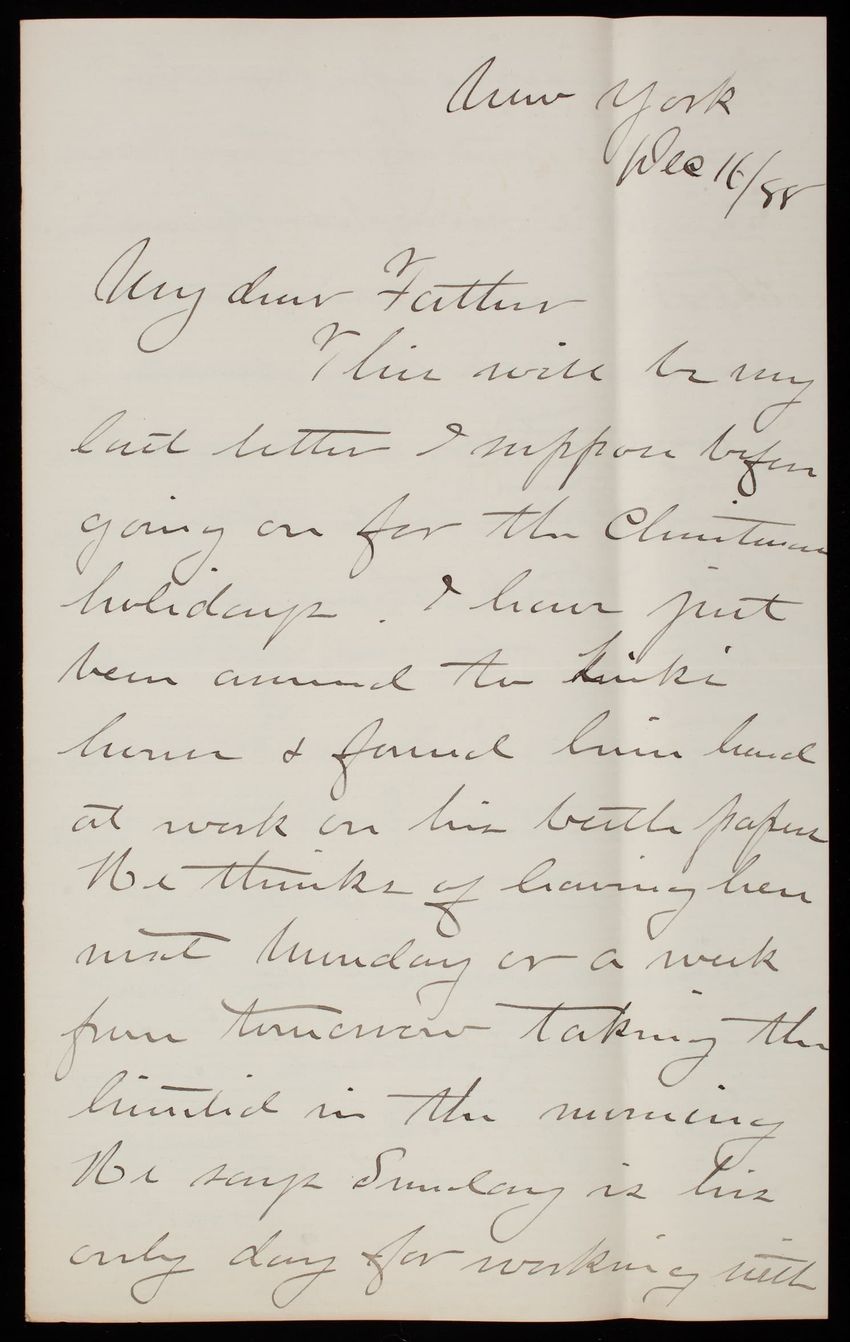 New York
Dec 16/88
My dear Father
This will be my
last letter I suppose before
going on for the Christmas
holidays. I have just
been around to
house & found him hard
at work on his beetle papers
He thinks of leaving here
next Monday or a week
from tomorrow taking the
limited in the morning
He says Sunday is his
only day for working with